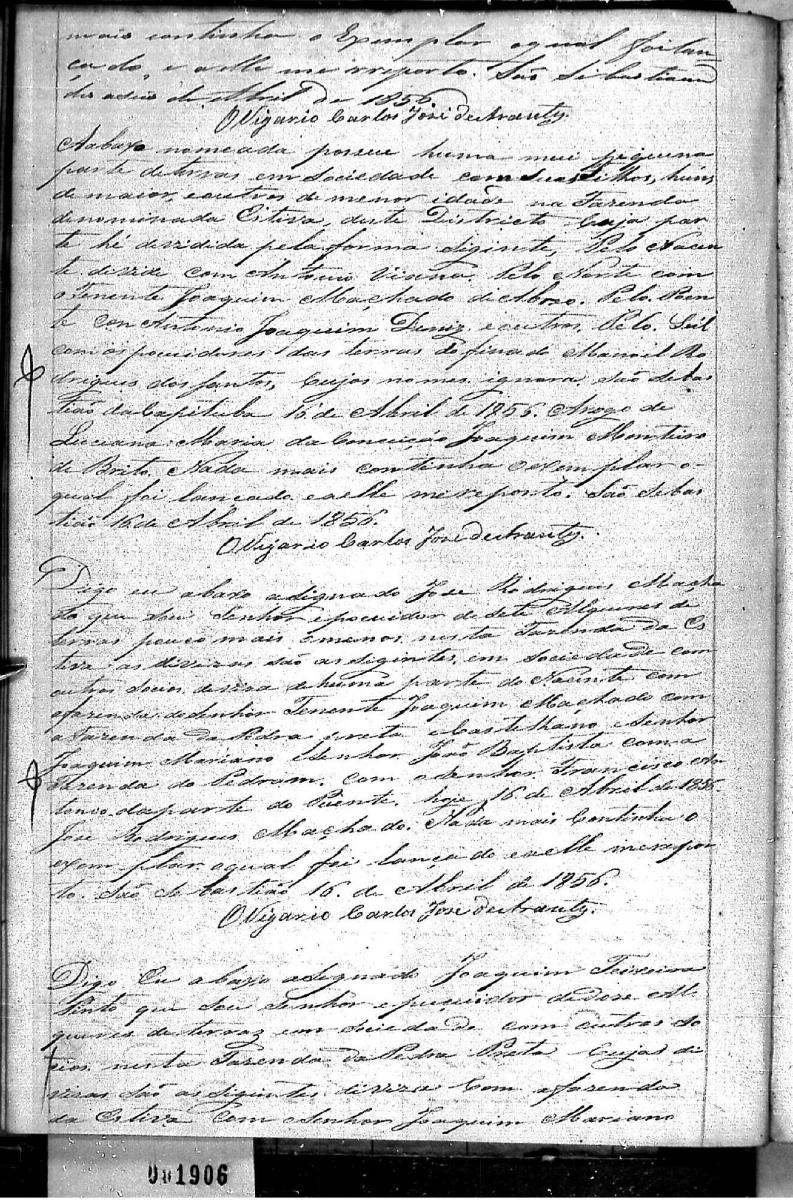 mais continha o Exemplar oqual foi lan=
çado, e a elle me rreporto. São Sebastiaõ
deseseis de Abril de 1856
O Vigario Carlos José de
Aabaxo nomeada possue huma mui piquena
parte de terras em Sociedade com Seus filhos, huns
de maior, e outros de menor idade na Fazenda
denominada Estiva, deste Districto Cuja par
te hé devidida pela forma siginte, Pelo Nacen
te divize com Antonio Viana. Pelo Norte com
o Tenente Joaquim Machado de Abreo. Pelo Poen
te Con Antonio Joaquim Deniz e outros, Pelo Sul
com os pocuidores das terras do finado Manoel Ro
drigues dos Santos, Cujos nomes ignora São Sebas
tião da Capituba 16 de Abril de 1856. Arogo de
Luciana Maria da Conceição Joaquim Monteiro
de Brito. Nada mais continha o exemplar o-
qual foi lancado e a elle me reporto. São Sebas
tião 16 de Abril de 1856.
O Vigario Carlos José de
Digo eu abaxo asignado Jose Rodrigues Macha
do que Sou Senhor e pocuidor de Sete Alqueires de
terras pouco mais emenos, nesta Fazenda da Es
tiva as divizas são as sigintes, em Sociedade com
outros Socios, deviza de huma parte do Nacente com
afazenda do Senhor Tenente Joaquim Machado com
a Fazenda da Pedra preta Castelhano e Senhor
Joaquim Mariano e Senhor João Baptista com a
Fazenda do Pedram, com o Senhor Francisco An
tonio da parte do Puente. hoje 16 de Abril de 1856.
Jose Rodrigues Machado. Nada mais Continha o
exemplar oqual foi lançado e a elle me repor
to. São Sebastião 16. de Abril de 1856.
O Vigario Carlos José de
Digo Eu abaxo asignado Joaquim Teixeira
Pinto que Sou Senhor e pucuidor de doze Al-
queires de terraz em Sociedade com outros So
cios, nesta Fazenda da Pedra Preta Cujas di
vizas são as sigintes diviza Com afazenda
da Estiva Com o Senhor Joaquim Mariano
001906